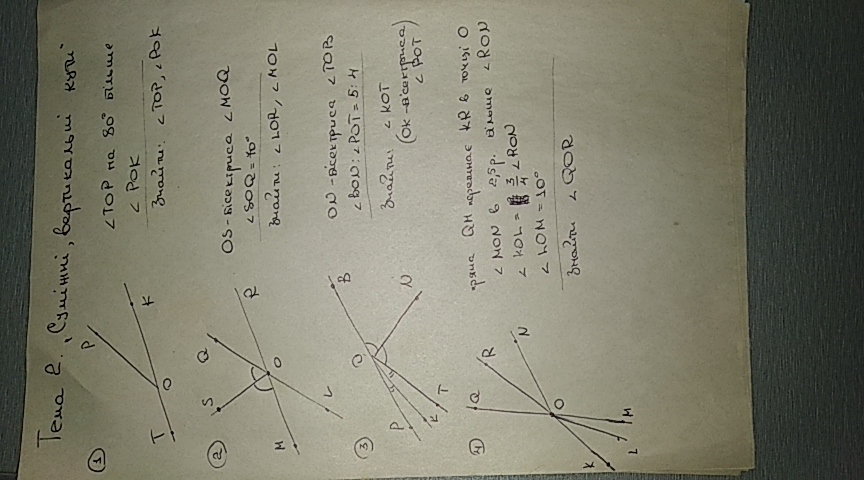 Тема 2. „Суміжні, вертикальні кути
①
P
T
O
K
∠TOP на 80° більше
∠POK
Знайти: ∠TOP, ∠POK
②
S
Q
M
O
R
L
OS - бісектриса ∠MOQ
∠SOQ = 70°
Знайти: ∠LOR, ∠MOL
③
O
B
N
P
K
T
ON - бісектриса ∠TOB
∠BON : ∠POT = 5:4
Знайти: ∠KOT
(OK - бісектриса
∠POT)
④
Q
R
N
O
K
L
M
пряма QM перетинає KR в точці O
∠MON в 2,5 р. більше ∠RON
∠KOL = 3/4 ∠RON
∠LOM = 10°
Знайти ∠QOR